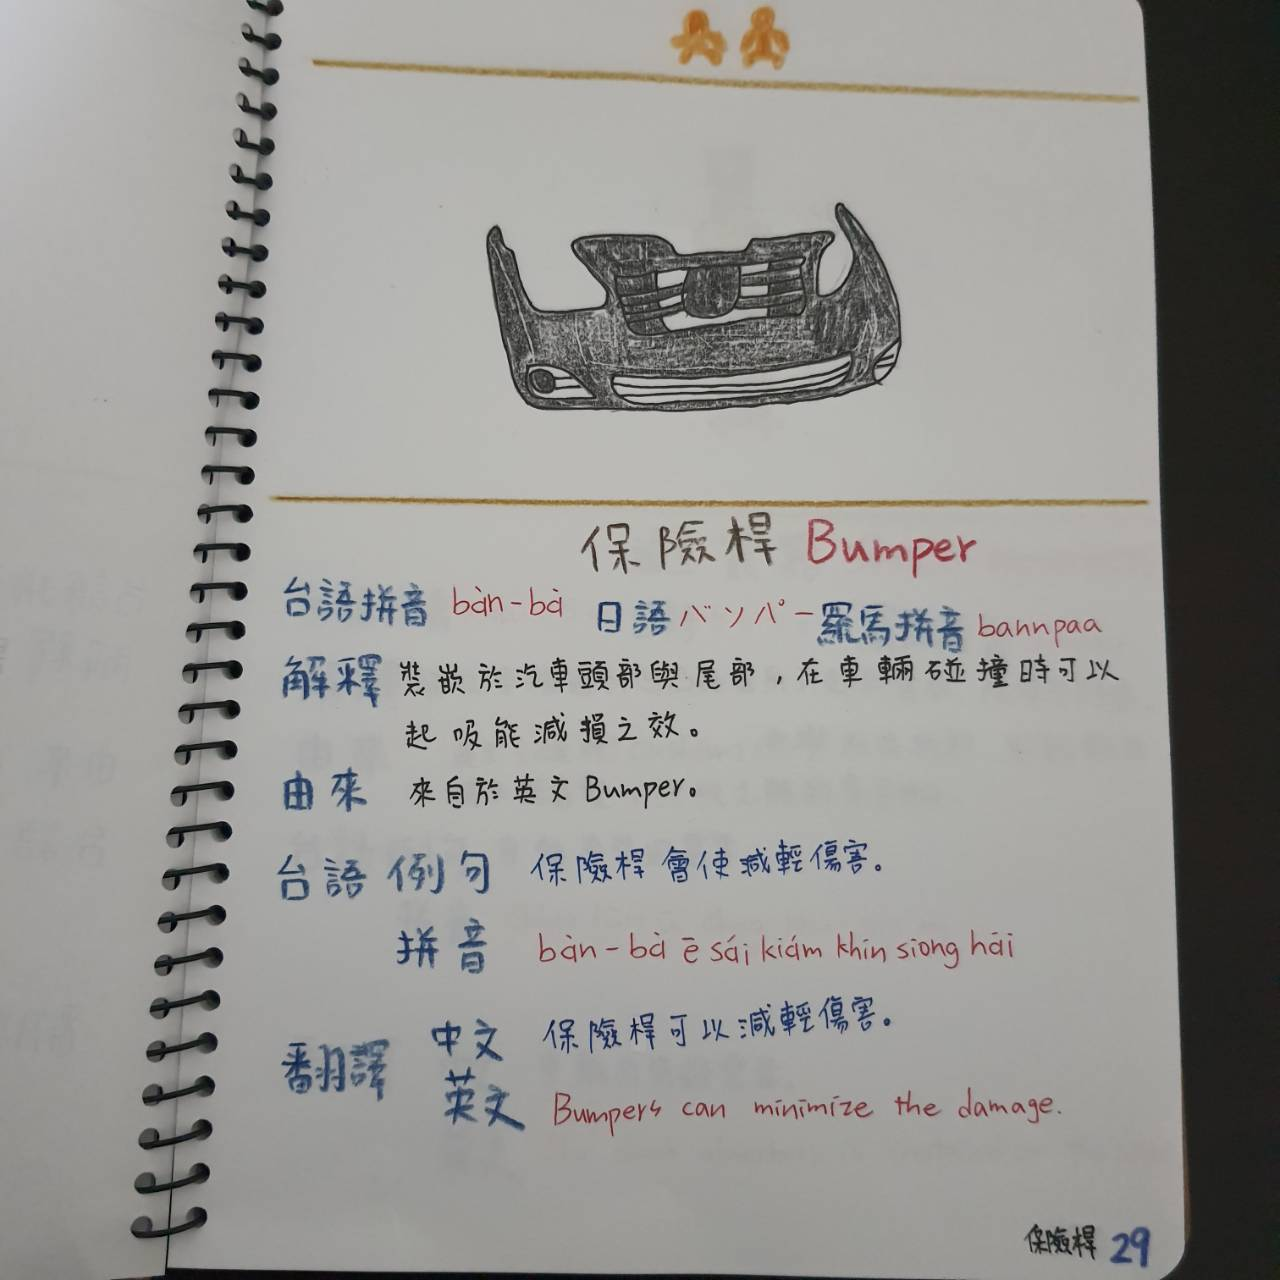 保險桿 Bumper
台語拼音 bàn-bà 日語バンパー羅馬拼音 bannpaa
解釋 裝嵌於汽車頭部與尾部，在車輛碰撞時可以
起吸能減損之效。
由來 來自於英文Bumper。
台語例句 保險桿會使減輕傷害。
拼音 bàn-bà ē sái kiám khin siong hāi
翻譯 中文 保險桿可以減輕傷害。
英文 Bumpers can minimize the damage.
保險桿 29